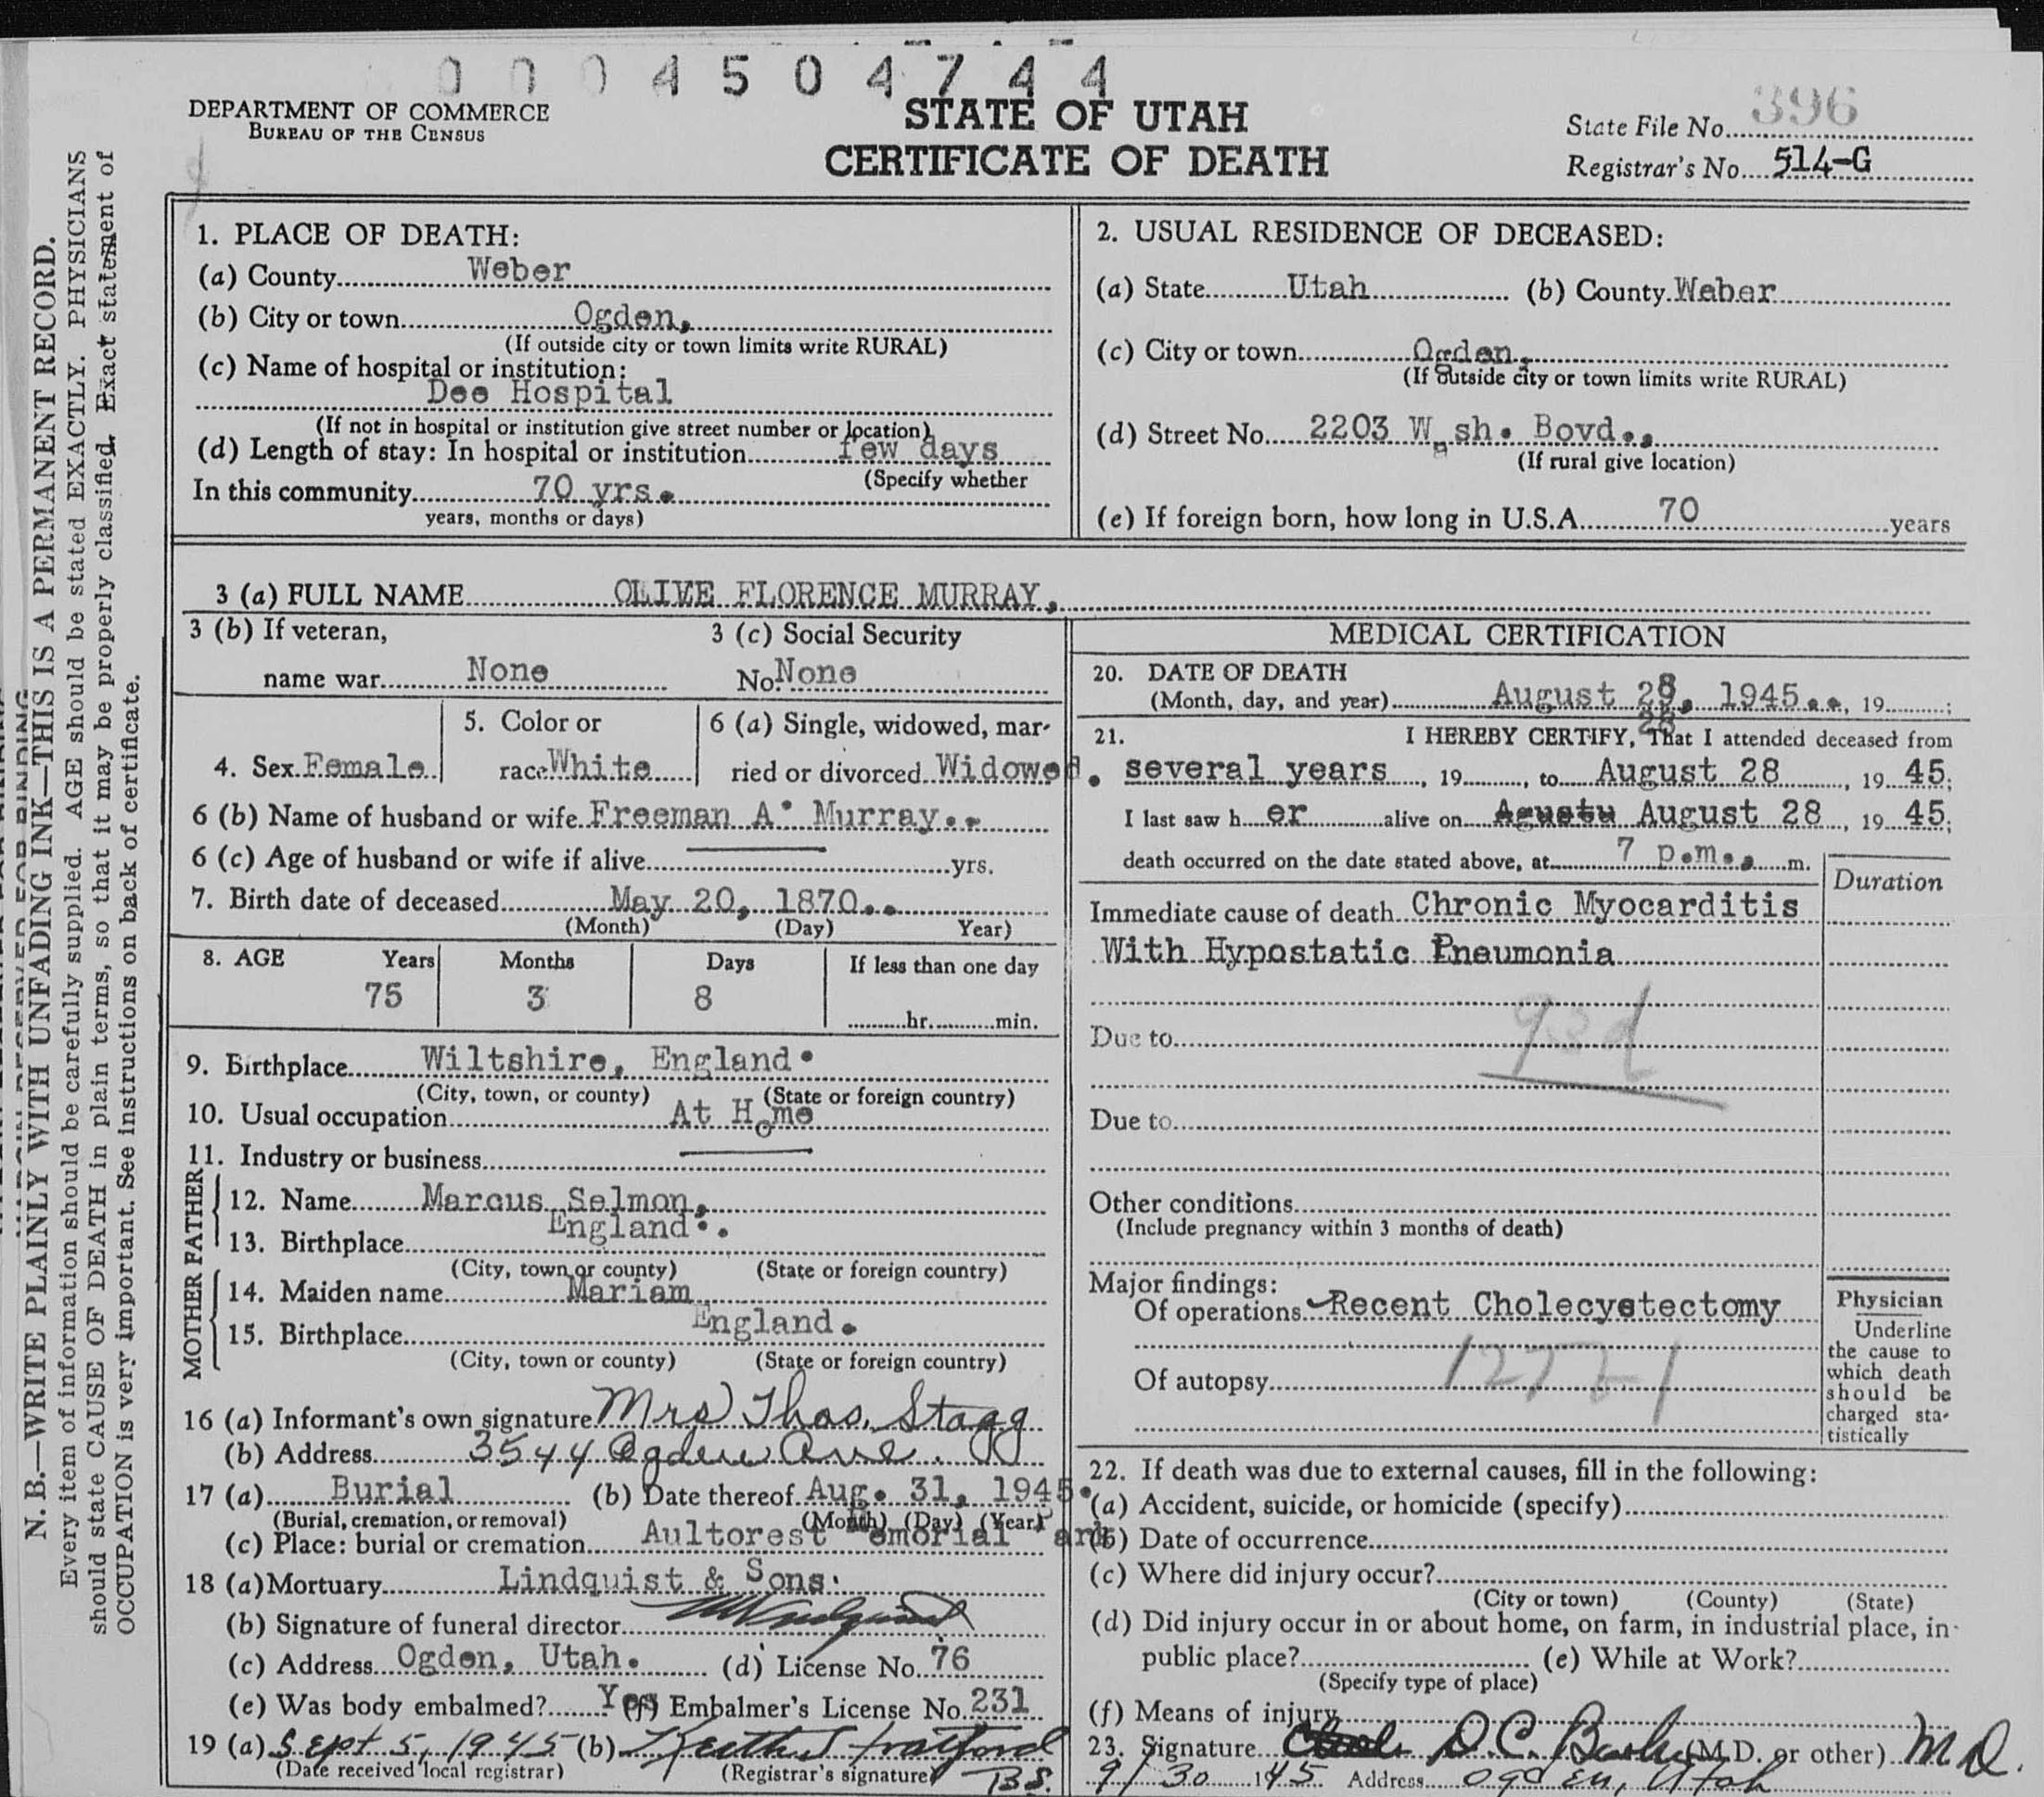 0 0 0 4 5 0 4 7 4 4
DEPARTMENT OF COMMERCE
BUREAU OF THE CENSUS
STATE OF UTAH
CERTIFICATE OF DEATH
State File No. 396
Registrar's No. 514-G
N. B.—WRITE PLAINLY WITH UNFADING INK—THIS IS A PERMANENT RECORD.
Every item of information should be carefully supplied. AGE should be stated EXACTLY. PHYSICIANS
should state CAUSE OF DEATH in plain terms, so that it may be properly classified. Exact statement of
OCCUPATION is very important. See instructions on back of certificate.
1. PLACE OF DEATH:
(a) County Weber
(b) City or town Ogden,
(If outside city or town limits write RURAL)
(c) Name of hospital or institution:
Dee Hospital
(If not in hospital or institution give street number or location)
(d) Length of stay: In hospital or institution few days
(Specify whether
In this community 70 yrs.
years, months or days)
2. USUAL RESIDENCE OF DECEASED:
(a) State Utah (b) County Weber
(c) City or town Ogden,
(If outside city or town limits write RURAL)
(d) Street No. 2203 Wash. Bovd.,
(If rural give location)
(e) If foreign born, how long in U.S.A. 70 years
3 (a) FULL NAME OLIVE FLORENCE MURRAY,
3 (b) If veteran, 3 (c) Social Security
name war None No. None
4. Sex Female 5. Color or race White 6 (a) Single, widowed, married or divorced Widowed.
6 (b) Name of husband or wife Freeman A. Murray..
6 (c) Age of husband or wife if alive yrs.
7. Birth date of deceased May 20, 1870..
(Month) (Day) Year)
8. AGE Years Months Days If less than one day
75 3 8 hr. min.
9. Birthplace Wiltshire, England.
(City, town, or county) (State or foreign country)
10. Usual occupation At Home
11. Industry or business
FATHER
12. Name Marcus Selmon,
13. Birthplace England..
(City, town or county) (State or foreign country)
MOTHER
14. Maiden name Mariam
15. Birthplace England.
(City, town or county) (State or foreign country)
16 (a) Informant's own signature Mrs Thos. Stagg
(b) Address 3544 Ogden Ave.
17 (a) Burial (b) Date thereof Aug. 31, 1945.
(Burial, cremation, or removal) (Month) (Day) (Year)
(c) Place: burial or cremation Aultorest Memorial Park
18 (a) Mortuary Lindquist & Sons.
(b) Signature of funeral director
(c) Address Ogden, Utah. (d) License No. 76
(e) Was body embalmed? Yes (f) Embalmer's License No. 231
19 (a) Sept 5, 1945 (b) Keith Stratford
(Date received local registrar) (Registrar's signature) B S.
MEDICAL CERTIFICATION
20. DATE OF DEATH
(Month, day, and year) August 28, 1945.., 19 ;
28
21. I HEREBY CERTIFY, That I attended deceased from
several years, 19 , to August 28, 19 45;
I last saw h er alive on August 28, 19 45;
death occurred on the date stated above, at 7 p.m., m.
Duration
Immediate cause of death Chronic Myocarditis
With Hypostatic Pneumonia
93d
Due to
Due to
Other conditions
(Include pregnancy within 3 months of death)
Major findings:
Of operations Recent Cholecystectomy
Of autopsy
Physician
Underline
the cause to
which death
should be
charged sta-
tistically
22. If death was due to external causes, fill in the following:
(a) Accident, suicide, or homicide (specify)
(b) Date of occurrence
(c) Where did injury occur?
(City or town) (County) (State)
(d) Did injury occur in or about home, on farm, in industrial place, in
public place? (e) While at Work?
(Specify type of place)
(f) Means of injury
23. Signature D.C. (M.D. or other) M D.
9/30 1945 Address Ogden, Utah